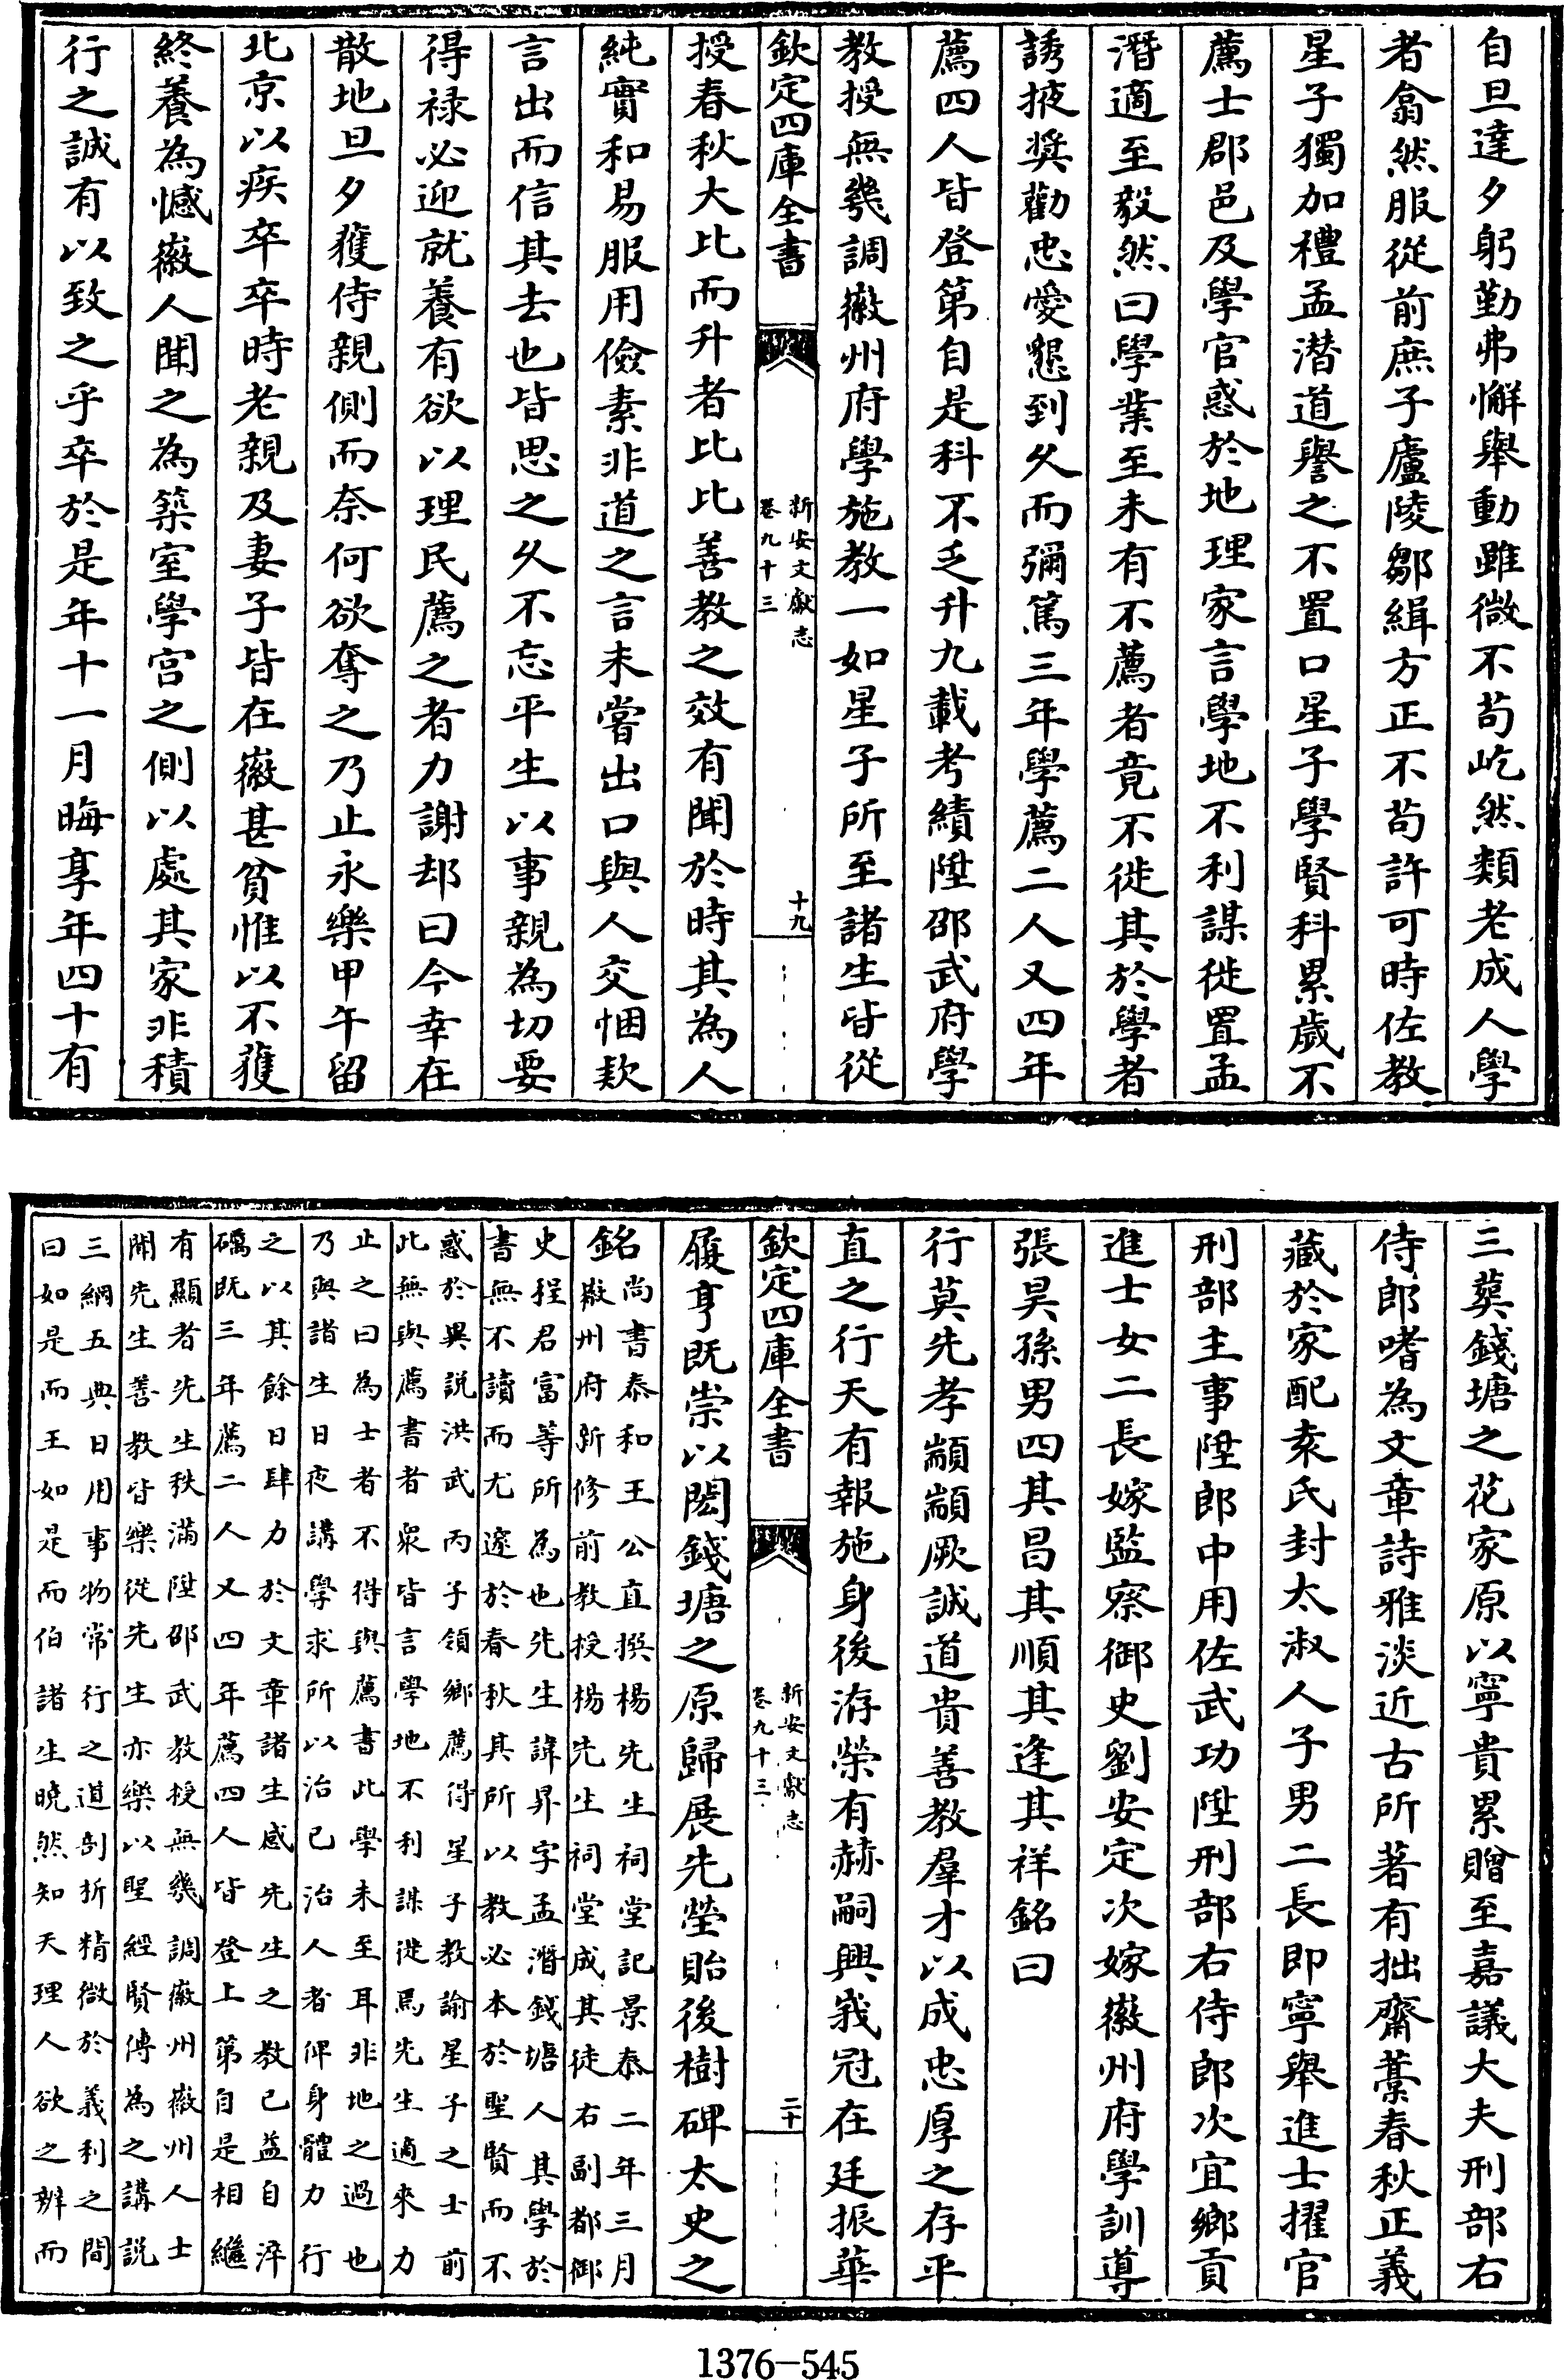 自旦達夕躬勤弗懈舉動雖微不苟屹然類老成人學
者翕然服從前庶子廬陵鄒緝方正不苟許可時佐教
星子獨加禮孟潛道譽之不置口星子學賢科累歲不
薦士郡邑及學官惑於地理家言學地不利謀徙置孟
潛適至毅然曰學業至未有不薦者竟不徙其於學者
誘掖奬勸忠愛懇到久而彌篤三年學薦二人又四年
薦四人皆登第自是科不乏升九載考績陞邵武府學
教授無幾調徽州府學施教一如星子所至諸生皆從
欽定四庫全書
新安文獻志
卷九十三
十九
授春秋大比而升者比比善教之效有聞於時其為人
純實和易服用儉素非道之言未嘗出口與人交悃欵
言出而信其去也皆思之久不忘平生以事親為切要
得禄必迎就養有欲以理民薦之者力謝却曰今幸在
散地旦夕獲侍親側而奈何欲奪之乃止永樂甲午留
北京以疾卒卒時老親及妻子皆在徽甚貧惟以不獲
終養為憾徽人聞之為築室學宫之側以處其家非積
行之誠有以致之乎卒於是年十一月晦享年四十有
三葬錢塘之花家原以寧貴累贈至嘉議大夫刑部右
侍郎嗜為文章詩雅淡近古所著有拙齋藁春秋正義
藏於家配袁氏封太淑人子男二長即寧舉進士擢官
刑部主事陞郎中用佐武功陞刑部右侍郎次宜鄉貢
進士女二長嫁監察御史劉安定次嫁徽州府學訓導
張昊孫男四其昌其順其逢其祥銘曰
行莫先孝顓顓厥誠道貴善教羣才以成忠厚之存平
直之行天有報施身後洊榮有赫嗣興峩冠在廷振華
欽定四庫全書
新安文獻志
卷九十三
二十
履亨既崇以閎錢塘之原歸展先塋貽後樹碑太史之
銘
尚書泰和王公直撰楊先生祠堂記景泰二年三月
徽州府新修前教授楊先生祠堂成其徒右副都御
史程君富等所為也先生諱昇字孟潛錢塘人其學於
書無不讀而尤邃於春秋其所以教必本於聖賢而不
惑於異説洪武丙子領鄉薦得星子教諭星子之士前
此無與薦書者衆皆言學地不利謀徙焉先生適來力
止之曰為士者不得與薦書此學未至耳非地之過也
乃與諸生日夜講學求所以治已治人者俾身體力行
之以其餘日肆力於文章諸生感先生之教已益自淬
礪既三年薦二人又四年薦四人皆登上第自是相繼
有顯者先生秩滿陞邵武教授無幾調徽州徽州人士
聞先生善教皆樂從先生亦樂以聖經賢傳為之講説
三綱五典日用事物常行之道剖折精微於義利之間
曰如是而王如是而伯諸生曉然知天理人欲之辨而
1376-545